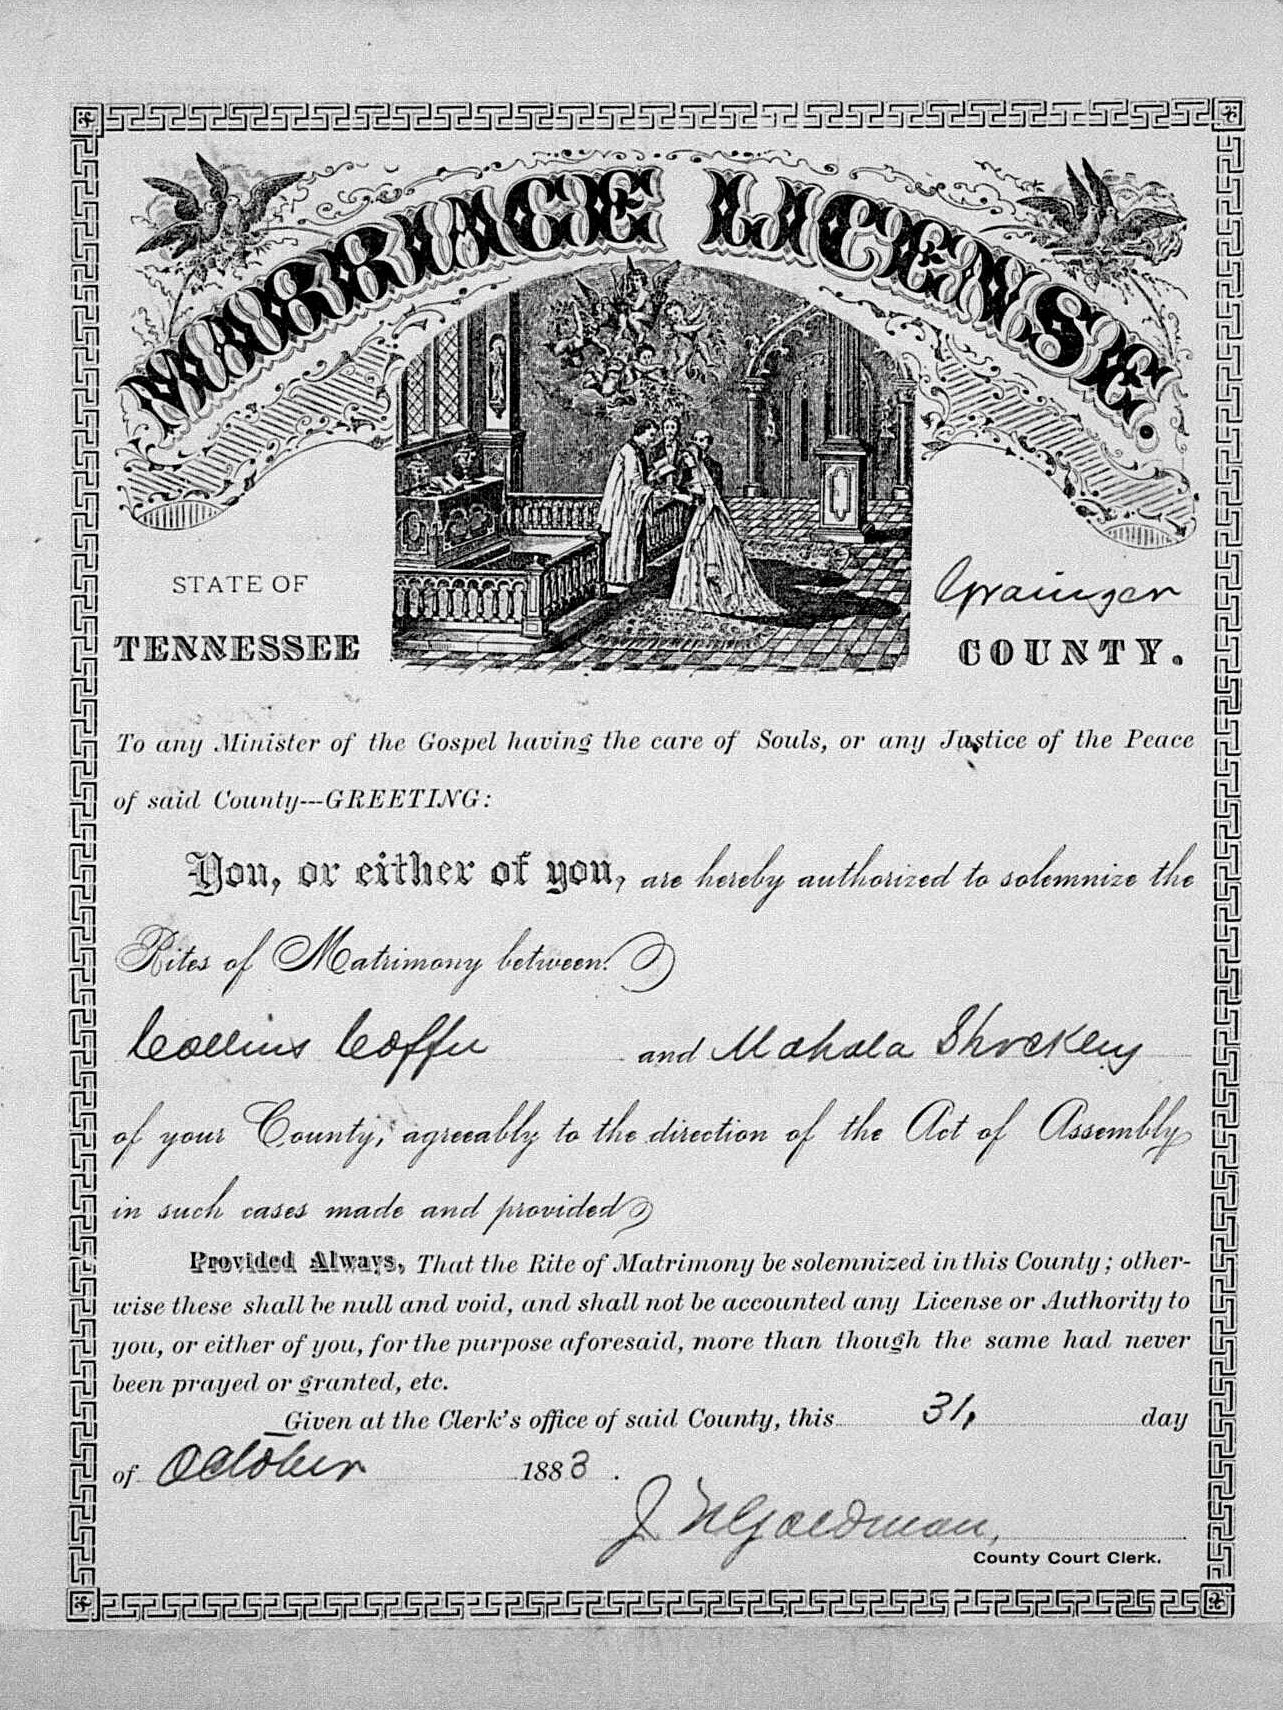 MARRIAGE LICENSE.
STATE OF
TENNESSEE
Grainger
COUNTY.
To any Minister of the Gospel having the care of Souls, or any Justice of the Peace
of said County---GREETING:
You, or either of you, are hereby authorized to solemnize the
Rites of Matrimony between
Collins Coffee and Mahala
of your County, agreeably to the direction of the Act of Assembly
in such cases made and provided
Provided Always, That the Rite of Matrimony be solemnized in this County; other-
wise these shall be null and void, and shall not be accounted any License or Authority to
you, or either of you, for the purpose aforesaid, more than though the same had never
been prayed or granted, etc.
Given at the Clerk's office of said County, this 31, day
of October 1883.
J N Goldman,
County Court Clerk.